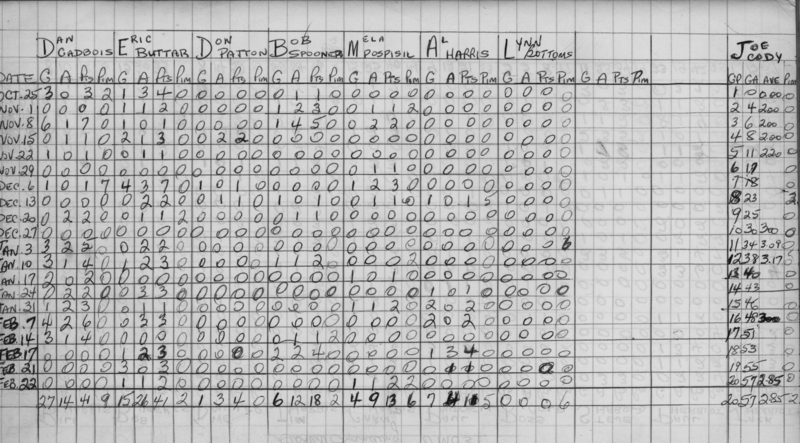 DAN GADBOIS ERIC BUTTAR DON PATTON BOB SPOONER MEL POSPISIL AL HARRIS LYNN BOTTOMS JOE CODY
DATE G A Pts Pim G A Pts Pim G A Pts Pim G A Pts Pim G A Pts Pim G A Pts Pim G A Pts Pim G A Pts Pim GP GA AVE Pim
OCT. 25 3 0 3 2 1 3 4 0 0 0 0 0 0 1 1 0 0 0 0 0 0 0 0 0 0 0 0 0 1 0 0.00 0
NOV. 1 0 0 0 0 1 1 2 0 0 0 0 0 1 2 3 0 0 1 1 2 0 0 0 0 0 0 0 0 2 4 2.00 0
NOV. 8 6 1 7 0 1 0 1 0 0 0 0 0 1 4 5 0 0 2 2 0 0 0 0 0 0 0 0 0 3 6 2.00 0
NOV. 15 0 1 1 0 2 1 3 0 0 2 2 0 0 0 0 0 0 0 0 0 0 0 0 0 0 0 0 0 4 8 2.00 0
NOV. 22 1 0 1 0 0 1 1 0 0 0 0 0 0 0 0 0 0 0 0 0 0 0 0 0 0 0 0 0 5 11 2.20
NOV. 29 0 0 0 0 0 0 0 0 0 0 0 0 0 0 0 0 0 1 1 0 0 0 0 0 0 0 0 0 6
DEC. 6 1 0 1 7 4 3 7 0 1 0 1 0 0 0 0 0 1 2 3 0 0 0 0 0 0 0 0 0 7 18
DEC. 13 0 0 0 0 0 2 2 0 0 1 1 0 1 0 1 0 0 1 1 0 1 0 1 5 0 0 0 0 8 23 2
DEC. 20 0 2 2 0 0 1 1 2 0 0 0 0 0 1 1 0 0 0 0 0 0 0 0 0 0 0 0 0 9 25
DEC. 27 0 0 0 0 0 0 0 0 0 0 0 0 0 0 0 0 0 0 0 0 0 0 0 0 0 0 0 0 10 30 3.00
JAN. 3 3 2 2 0 0 2 2 0 0 0 0 0 0 0 0 0 0 0 0 0 0 0 0 0 0 0 0 6 11 34 3.09
JAN. 10 3 1 4 0 1 2 3 0 0 0 0 0 1 1 2 0 0 0 0 2 0 0 0 0 0 0 0 0 12 38 3.17
JAN. 17 2 0 2 0 0 0 0 0 0 0 0 0 0 0 0 0 1 0 1 0 0 0 0 0 0 0 0 0 13 40
JAN. 24 0 2 2 0 0 3 3 0 0 0 0 0 0 0 0 0 0 0 0 0 1 0 1 0 0 0 0 0 14 43
JAN. 31 1 2 3 0 0 1 1 0 0 0 0 0 0 0 0 0 1 1 2 0 2 0 2 0 0 0 0 0 15 46
FEB. 7 4 2 6 0 0 3 3 0 0 0 0 0 0 0 0 0 0 0 0 0 2 0 2 0 0 0 0 0 16 48 3.00
FEB. 14 3 1 4 0 0 0 0 0 0 0 0 0 0 1 1 2 0 0 0 0 0 0 0 0 0 0 0 0 17 51
FEB 17 0 0 0 0 1 2 3 0 0 0 0 0 2 2 4 0 0 0 0 0 1 3 4 0 0 0 0 0 18 53
FEB. 21 0 0 0 0 3 0 3 0 0 0 0 0 0 0 0 0 0 0 0 0 0 1 1 0 0 0 0 0 19 55
FEB. 22 0 0 0 0 1 1 2 0 0 0 0 0 0 0 0 0 1 1 2 2 0 0 0 0 0 0 0 0 20 57 2.85 0
27 14 41 9 15 26 41 2 1 3 4 0 6 12 18 2 4 9 13 6 7 4 11 5 0 0 0 6 20 57 2.85 2